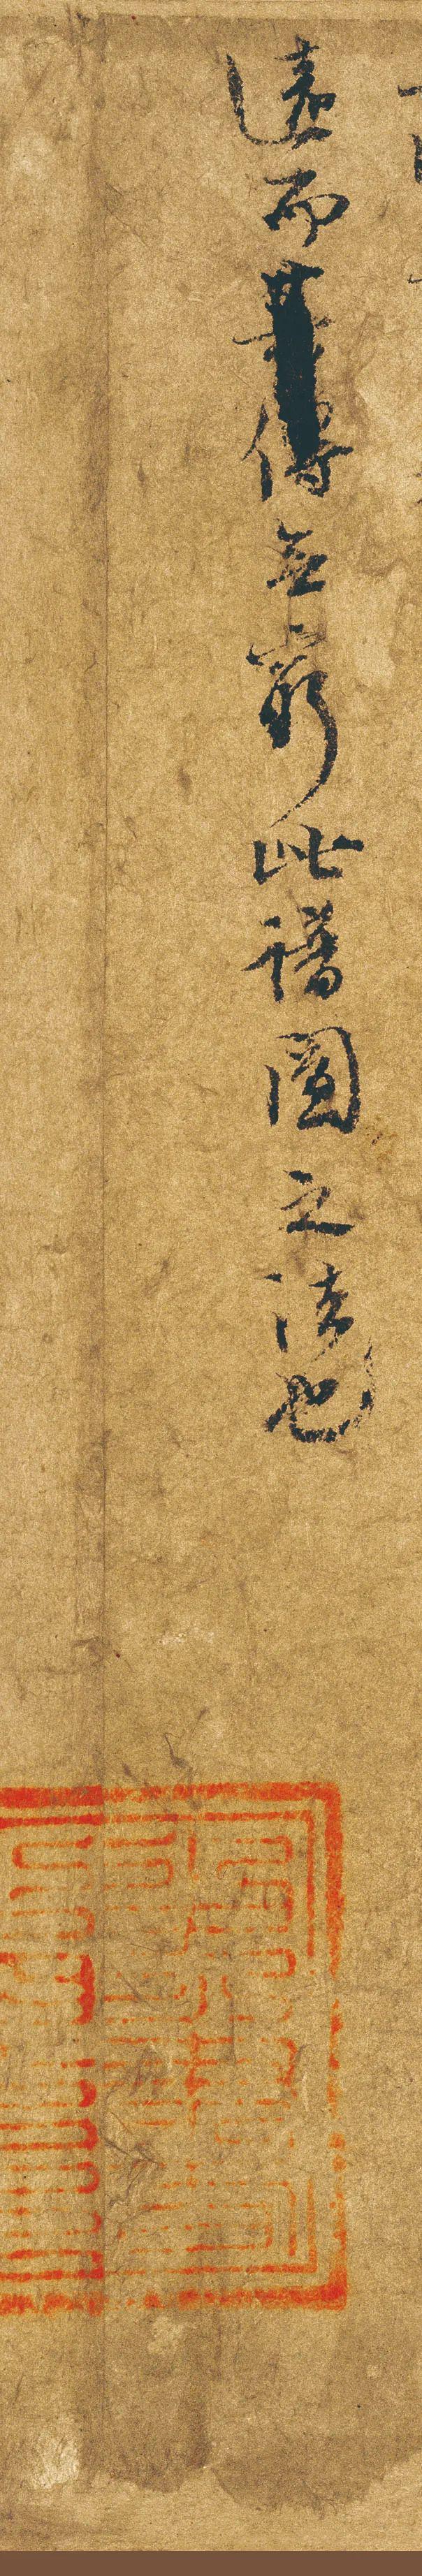 遠而傳無窮此譜圖之法也